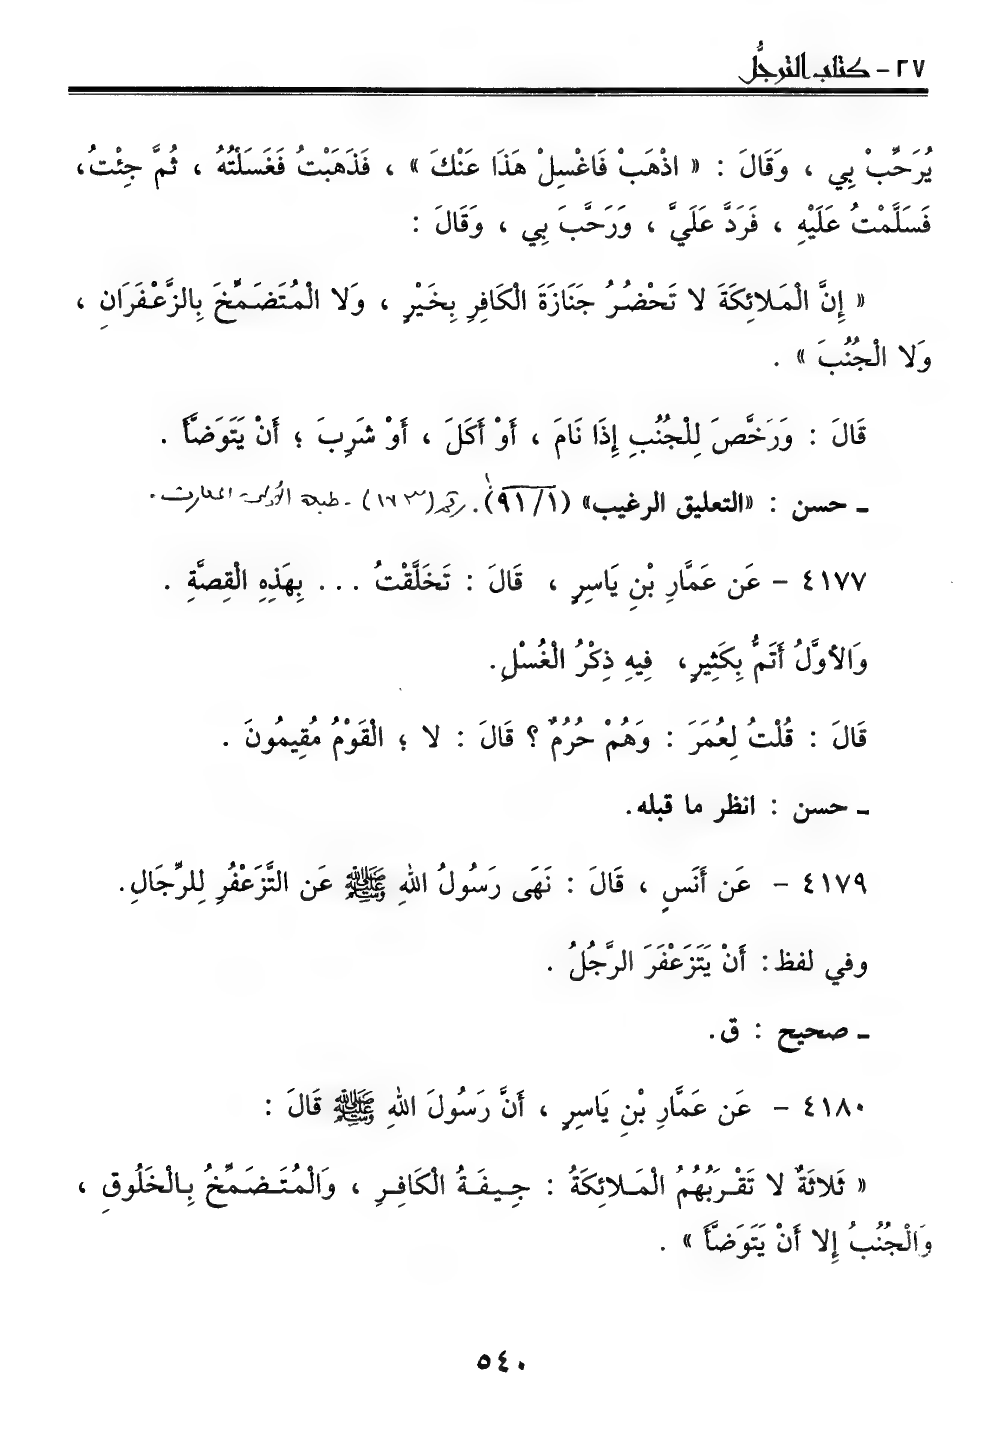 ٢٧ - كتاب الترجُّل
يُرَحِّبْ بِي ، وَقَالَ : « اذْهَبْ فَاغْسِلْ هَذَا عَنْكَ » ، فَذَهَبْتُ فَغَسَلْتُهُ ، ثُمَّ جِئْتُ،
فَسَلَّمْتُ عَلَيْهِ ، فَرَدَّ عَلَيَّ ، وَرَحَّبَ بِي ، وَقَالَ :
« إِنَّ الْمَلائِكَةَ لا تَحْضُرُ جَنَازَةَ الْكَافِرِ بِخَيْرٍ ، وَلا الْمُتَضَمِّخَ بِالزَّعْفَرَانِ ،
وَلا الْجُنُبَ » .
قَالَ : وَرَخَّصَ لِلْجُنُبِ إِذَا نَامَ ، أَوْ أَكَلَ ، أَوْ شَرِبَ ؛ أَنْ يَتَوَضَّأَ .
ـ حسن : «التعليق الرغيب» (٩١/١). رقم (١٦٣) - طبعة الأولى - المعارف .
٤١٧٧ - عَن عَمَّارِ بْنِ يَاسِرٍ ، قَالَ : تَخَلَّقْتُ ... بِهَذِهِ الْقِصَّةِ .
وَالأوَّلُ أَتَمُّ بِكَثِيرٍ، فِيهِ ذِكْرُ الْغُسْلِ.
قَالَ : قُلْتُ لِعُمَرَ : وَهُمْ حُرُمٌ ؟ قَالَ : لا ؛ الْقَوْمُ مُقِيمُونَ .
ـ حسن : انظر ما قبله.
٤١٧٩ - عَن أَنَسٍ ، قَالَ : نَهَى رَسُولُ اللهِ ﷺ عَن التَّزَعْفُرِ لِلرِّجَالِ.
وفي لفظ: أَنْ يَتَزَعْفَرَ الرَّجُلُ .
ـ صحيح : ق.
٤١٨٠ - عَن عَمَّارِ بْنِ يَاسِرٍ ، أَنَّ رَسُولَ اللهِ ﷺ قَالَ :
« ثَلاثَةٌ لا تَقْرَبُهُمُ الْمَلائِكَةُ : جِيفَةُ الْكَافِرِ ، وَالْمُتَضَمِّخُ بِالْخَلُوقِ ،
وَالْجُنُبُ إِلا أَنْ يَتَوَضَّأَ » .
٥٤٠